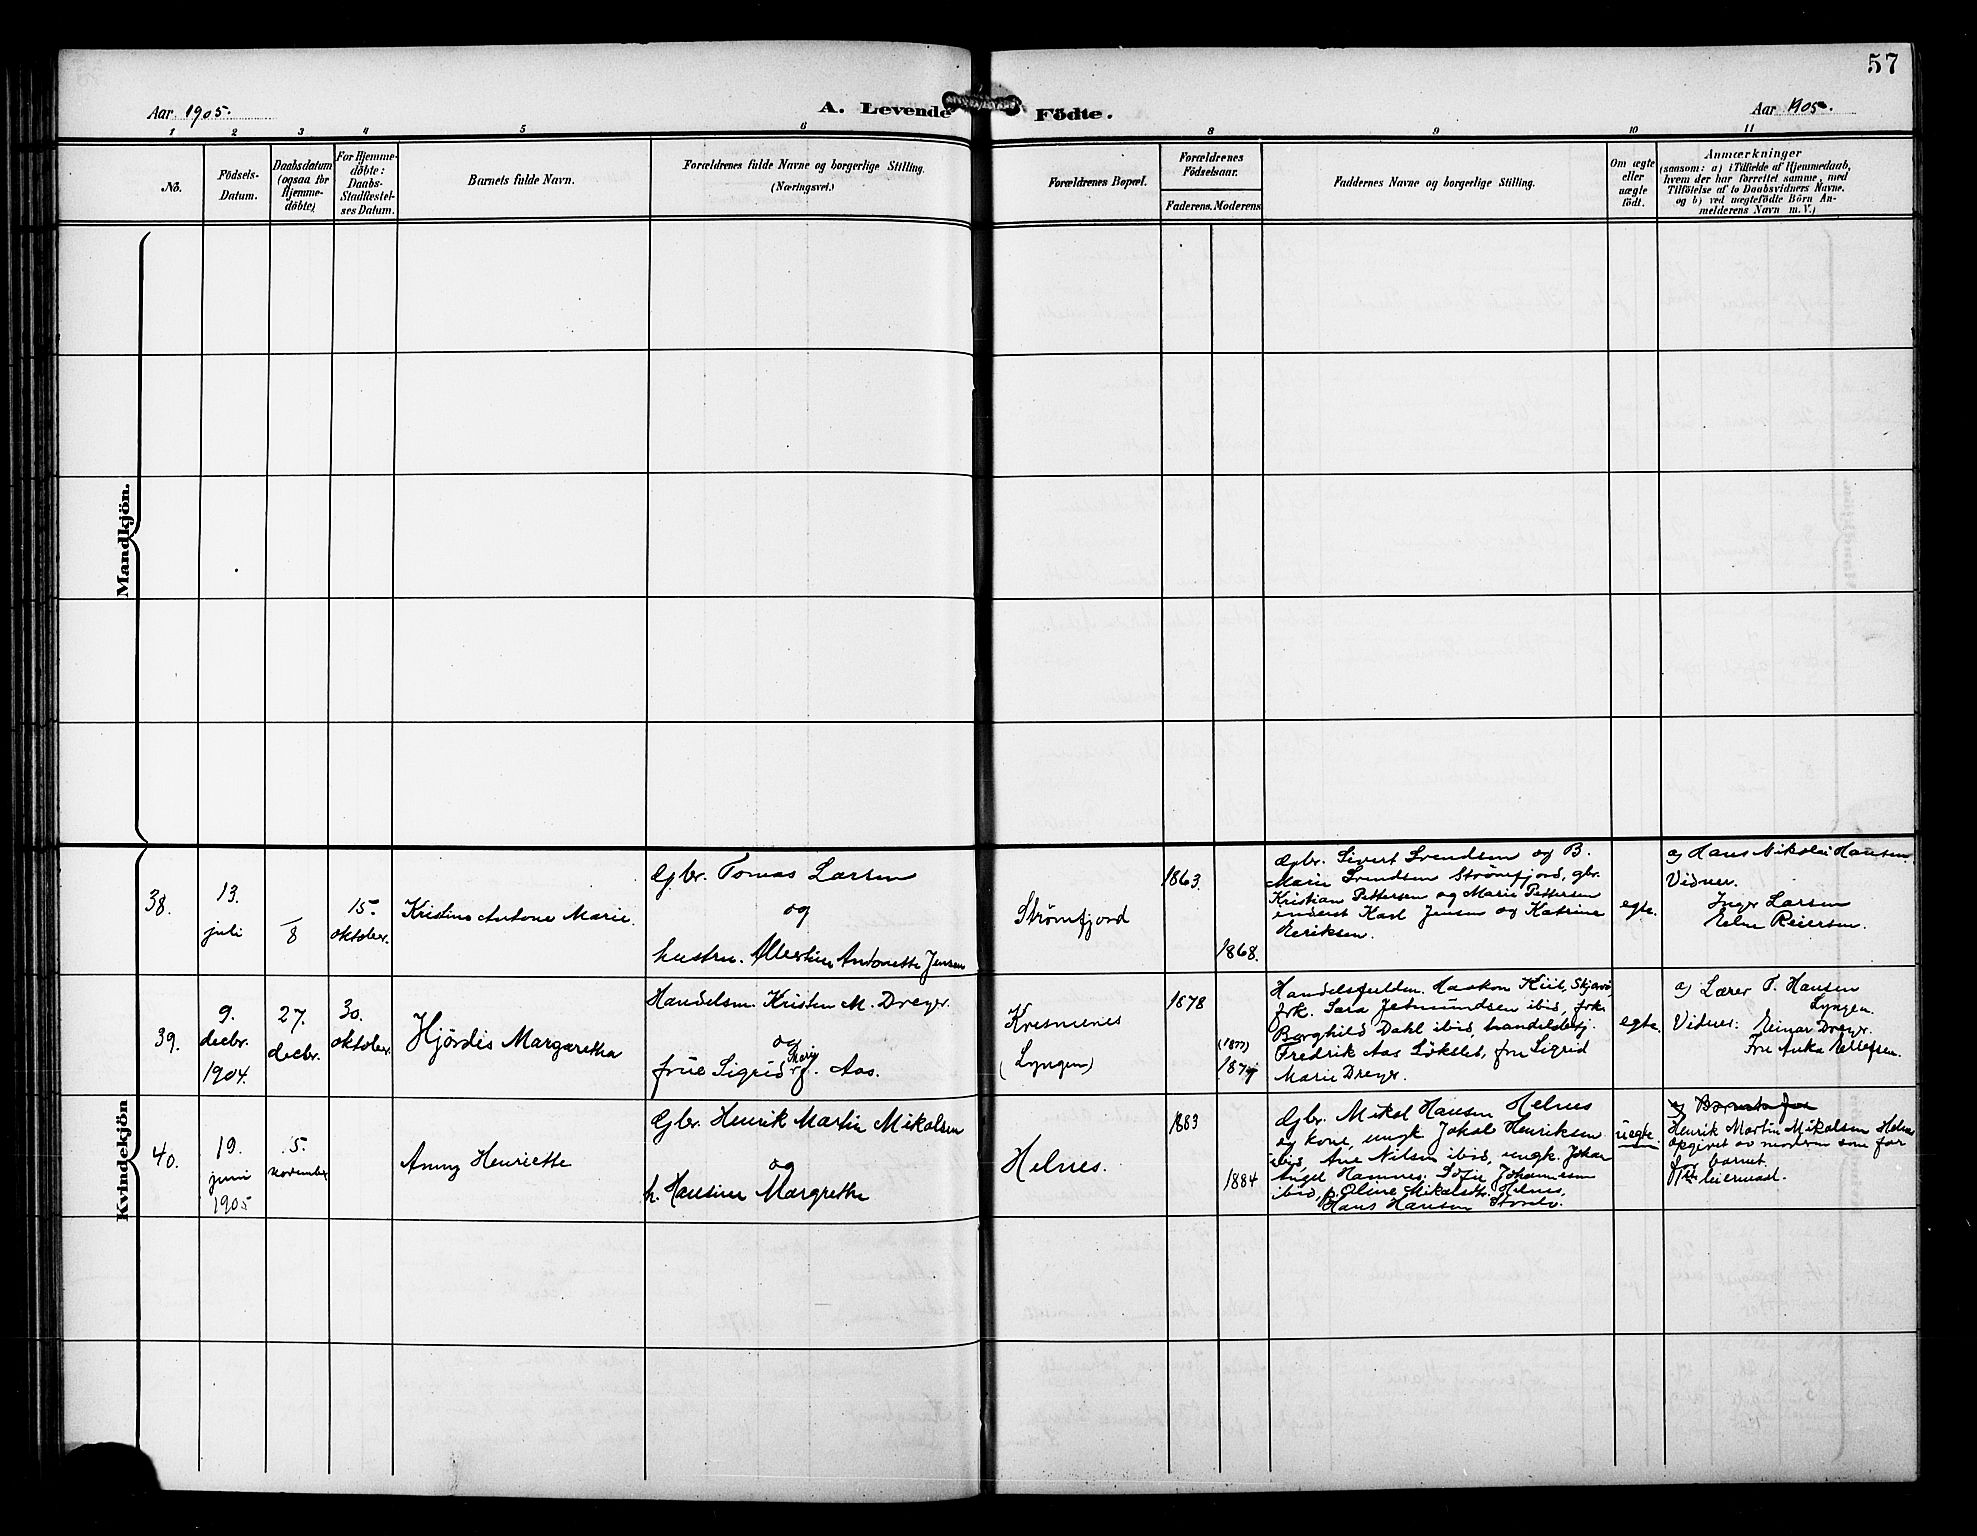 57
Aar 1905.
A. Levende Födte.
Aar 1905.
1 2 3 4 5 6 8 9 10 11
No.
Födsels-
Datum.
Daabsdatum
(ogsaa for
Hjemme-
döbte)
For Hjemme-
döbte:
Daabs-
Stadfæstel-
ses Datum.
Barnets fulde Navn.
Forældrenes fulde Navne og borgerlige Stilling.
(Næringsvei.)
Forældrenes Bopæl.
Forældrenes
Födselsaar.
Faderens. Moderens
Faddernes Navne og borgerlige Stilling.
Om ægte
eller
uægte
født.
Anmærkninger
(saasom: a) i Tilfælde af Hjemmedaab,
hvem der har forrettet samme, med
Tilföielse af to Daabsvidners Navne.
og b) ved uægtefödte Börn An-
melderens Navn m. V.)
Mandkjön.
Kvindekjön
38.
13.
juli
/8
15.
oktober.
Kristine Antone Marie.
Gbr. Tomas Larsen
og
hustru. Albertine Antonette Jensen
Strømfjord
1863.
1868.
Gbr. Sivert Svendsen og B.
Marie Svendsen Strømfjord, gbr.
Kristian Pettersen og Marie Pettersen
Karl Jensen og Katrine
Eeriksen.
egte.
a) Hans Nikolai Hansen.
Vidner.
Inger Larsen
Reiersen.
39.
9.
decbr.
1904.
27.
decbr.
30.
oktober.
Hjördis Margaretha
Handelsm. Kristen M. Dreyer.
og
frue Sigrid Marie f. Aas.
(Lyngen)
1878
(1877)
Handelsfuldm. Haakon
frk. Sara Jetmundsen ibid, frk.
Borghild Dahl ibid, handelsbetj.
Fredrik Aas Løkslet, fru Sigrid
Marie Dreyer.
egte.
a) Lærer T. Hansen
Lyngen.
Vidner: Einar Dreyer.
Fru Anka Ellefsen.
40.
19.
juni
1905
5.
november
Anny Henriette
Gbr. Henrik Martin Mikalsen
og
h. Hansine Margrethe
Helnes.
1883
1884
Gbr. Mikal Hansen Helnes
og kone, ungk. Jakob Henriksen
ibid, Ane Nilsen ibid, ungk. Johan
Angel Hamnes. Sofie Johannesen
ibid, p. Oline Mikalsdtr. Helnes,
Hans Hansen
uegte.
Henrik Martin Mikalsen Helnes
opgivet av moderen som far
for barnet.
leiermaal.